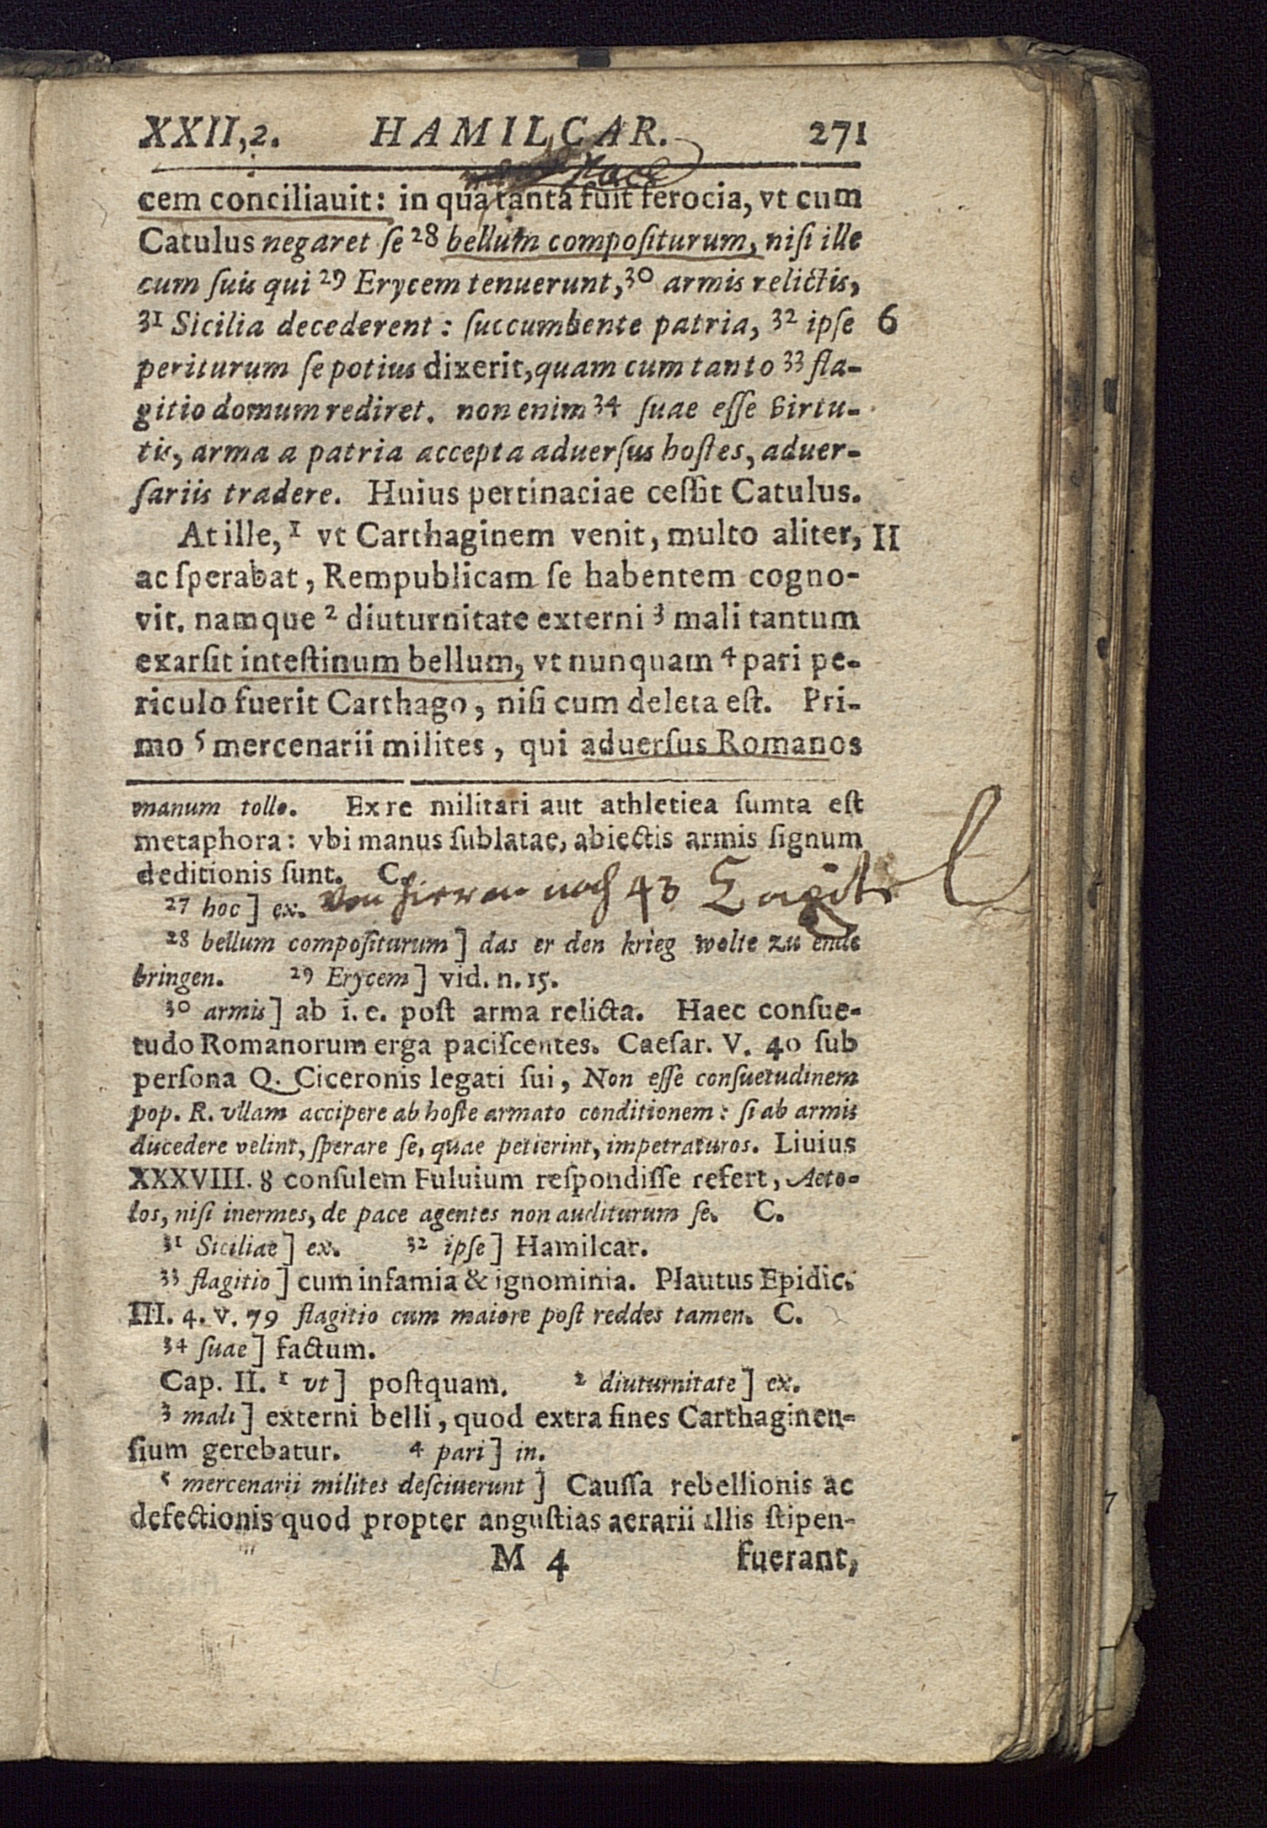 XXII,2. HAMILCAR. 271
pace
cem conciliauit: in qua tanta fuit ferocia, vt cum
Catulus negaret ſe 28 bellum compoſiturum, niſi ille
cum ſuis qui 29 Erycem tenuerunt,30 armis relictis,
31 Sicilia decederent: ſuccumbente patria, 32 ipſe 6
periturum ſe potius dixerit,quam cum tanto 33 fla-
gitio domum rediret. non enim 34 ſuae eſſe virtu-
tis, arma a patria accepta aduerſus hoſtes, aduer-
ſariis tradere. Huius pertinaciae ceſſit Catulus.
At ille, 1 vt Carthaginem venit, multo aliter, II
ac ſperabat, Rempublicam ſe habentem cogno-
vit. namque 2 diuturnitate externi 3 mali tantum
exarſit inteſtinum bellum, vt nunquam 4 pari pe-
riculo fuerit Carthago, niſi cum deleta eſt. Pri-
mo 5 mercenarii milites, qui aduerſus Romanos
manum tollo. Ex re militari aut athletica ſumta eſt
metaphora: vbi manus ſublatae, abiectis armis ſignum
deditionis ſunt. C.
27 hoc] ex. Von hier an noch 43 Capitel
28 bellum compoſiturum] das er den krieg wolte zu ende
bringen. 29 Erycem] vid. n. 15.
30 armis] ab i. e. poſt arma relicta. Haec conſue-
tudo Romanorum erga paciſcentes. Caeſar. V. 40 ſub
perſona Q. Ciceronis legati ſui, Non eſſe conſuetudinem
pop. R. vllam accipere ab hoſte armato conditionem: ſi ab armis
diſcedere velint, ſperare ſe, quae petierint, impetraturos. Liuius
XXXVIII. 8 conſulem Fuluium reſpondiſſe refert, Aeto-
los, niſi inermes, de pace agentes non auditurum ſe. C.
31 Siciliae] ex. 32 ipſe] Hamilcar.
33 flagitio] cum infamia & ignominia. Plautus Epidic.
III. 4. v. 79 flagitio cum maiore poſt reddes tamen. C.
34 ſuae] factum.
Cap. II. 1 vt] poſtquam. 2 diuturnitate] ex.
3 mali] externi belli, quod extra fines Carthaginen-
ſium gerebatur. 4 pari] in.
5 mercenarii milites deſciuerunt] Cauſſa rebellionis ac
defectionis quod propter anguſtias aerarii illis ſtipen-
M 4 fuerant,